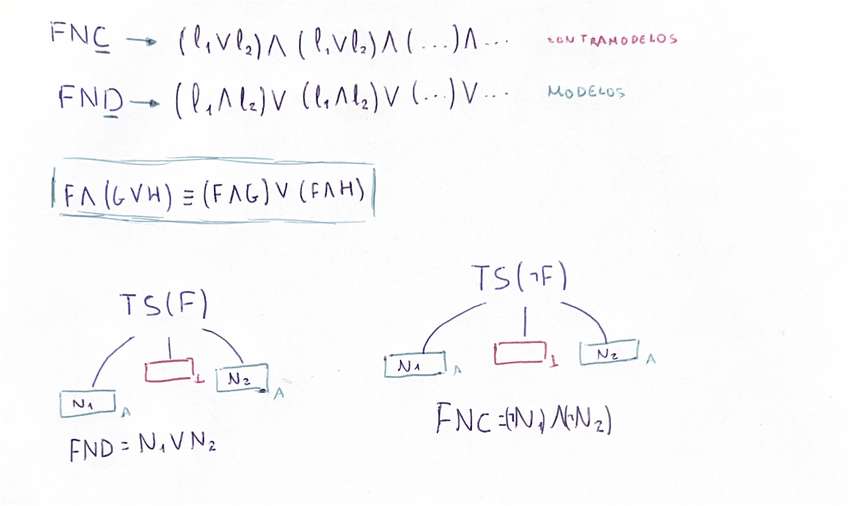 FNC → (l₁∨l₂)∧(l₁∨l₂)∧(...)∧... CONTRAMODELOS
FND → (l₁∧l₂)∨(l₁∧l₂)∨(...)∨... MODELOS
F∧(G∨H)≡(F∧G)∨(F∧H)
TS(F)
N₁ A
⊥
N₂ A
FND = N₁∨N₂
TS(¬F)
N₁ A
⊥
N₂ A
FNC=(¬N₁)∧(¬N₂)